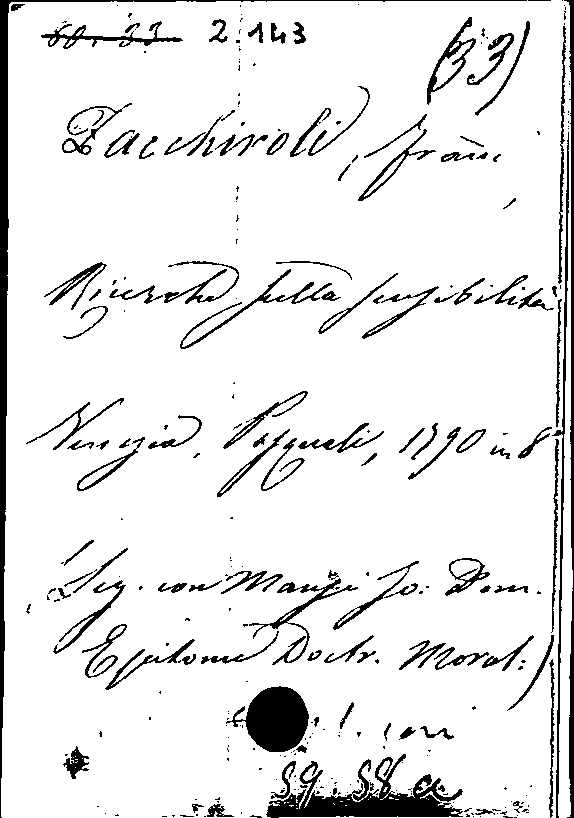 60. 33 2.143
(33)
Zacchiroli, Franc
Ricerche sulla sensibilità
Venezia, Pasquali, 1790 in 8°
(Leg. con Mansi Jo: Dom.
Epitome Doctr. Moral:)
59. 58 a